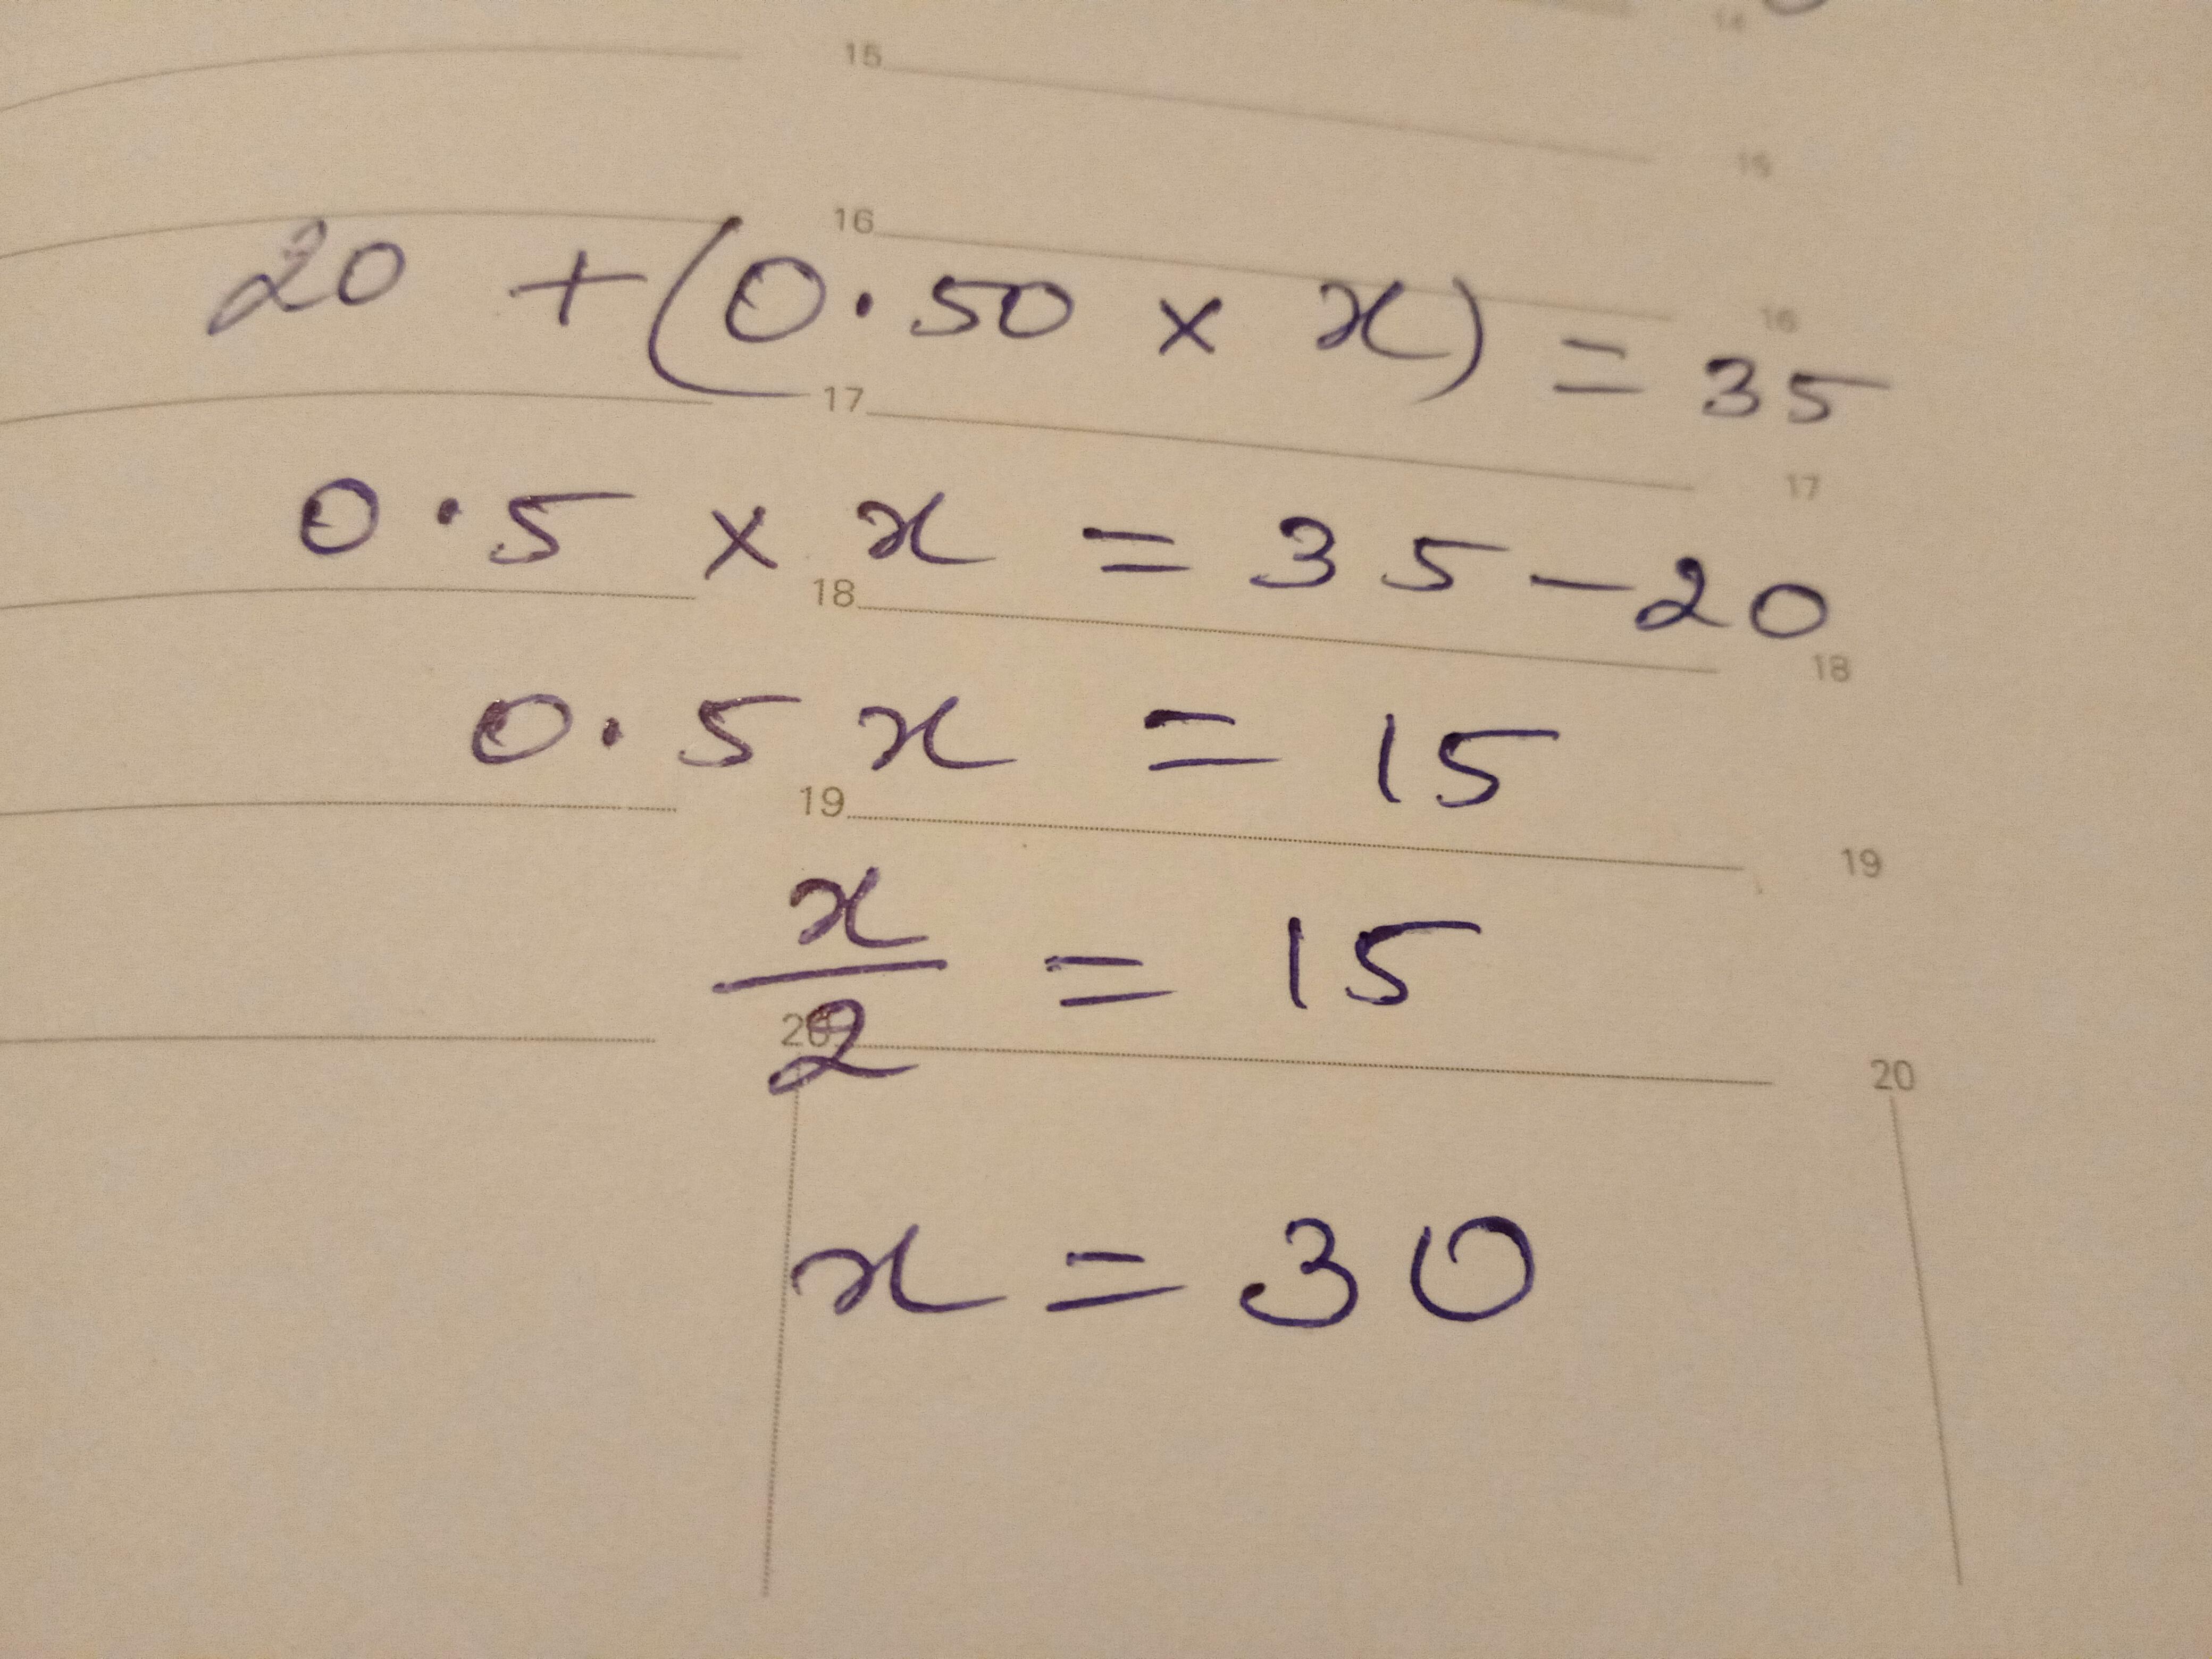 14
15
15
16
20 + (0.50 × x) = 35
16
17
17
0.5 × x = 35 - 20
18
18
0.5 x = 15
19
19
x/2 = 15
20
20
x = 30